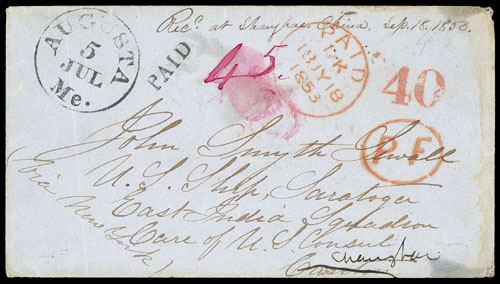 Rec.d at Shanghae, China, Sep. 18. 1853.
AUGUSTA
5
JUL
Me.
PAID
45.
PAID
18 JY 18
1853
40
P F
John Smyth Sewall
U.S. Ship, Saratoga
East India Squadron
Care of U S Consul
Shanghae
(via
New York)